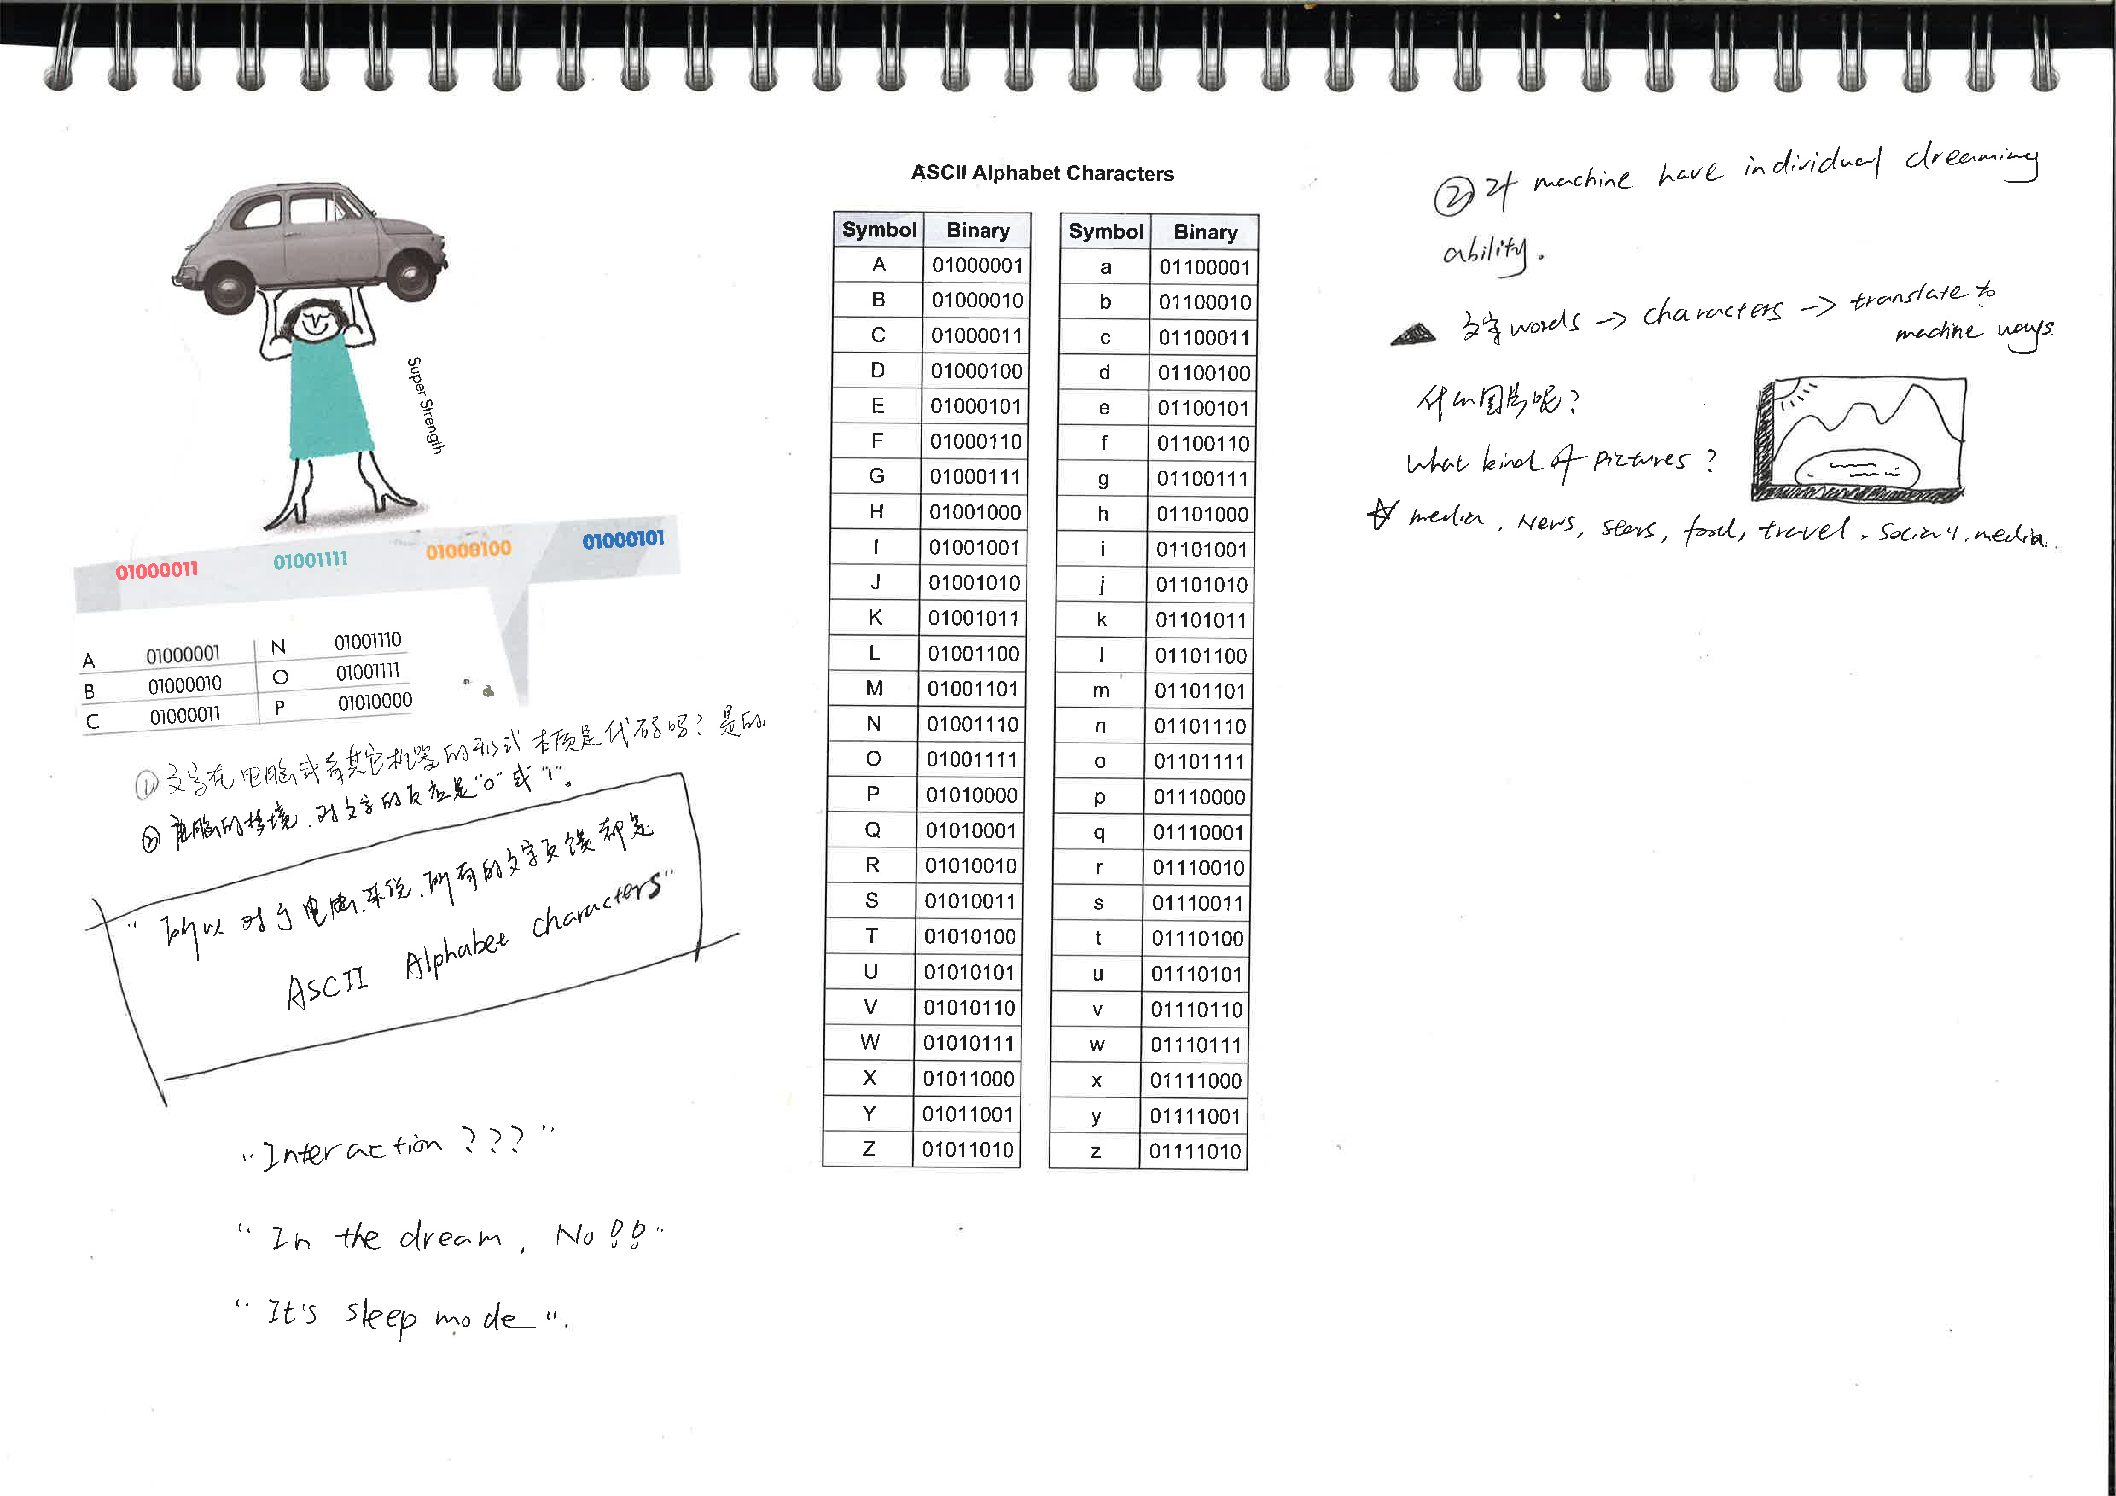 Super Strength
01000011 01001111 01000100 01000101
A 01000001 N 01001110
B 01000010 O 01001111
C 01000011 P 01010000
① 文字在电脑或者其它机器的形式本质是代码吗? 是的
② 电脑的梦境, 对文字的反应是"0"或"1"。
"所以对于电脑系统, 所有的文字反馈都是
ASCII Alphabet characters"
"Interaction ???"
"In the dream, No!!"
"It's sleep mode".
ASCII Alphabet Characters
Symbol Binary Symbol Binary
A 01000001 a 01100001
B 01000010 b 01100010
C 01000011 c 01100011
D 01000100 d 01100100
E 01000101 e 01100101
F 01000110 f 01100110
G 01000111 g 01100111
H 01001000 h 01101000
I 01001001 i 01101001
J 01001010 j 01101010
K 01001011 k 01101011
L 01001100 l 01101100
M 01001101 m 01101101
N 01001110 n 01101110
O 01001111 o 01101111
P 01010000 p 01110000
Q 01010001 q 01110001
R 01010010 r 01110010
S 01010011 s 01110011
T 01010100 t 01110100
U 01010101 u 01110101
V 01010110 v 01110110
W 01010111 w 01110111
X 01011000 x 01111000
Y 01011001 y 01111001
Z 01011010 z 01111010
② If machine have individual dreaming
ability.
文字 words -> characters -> translate to
machine ways.
什么图片呢?
What kind of pictures?
media, News, stars, food, travel, social media.